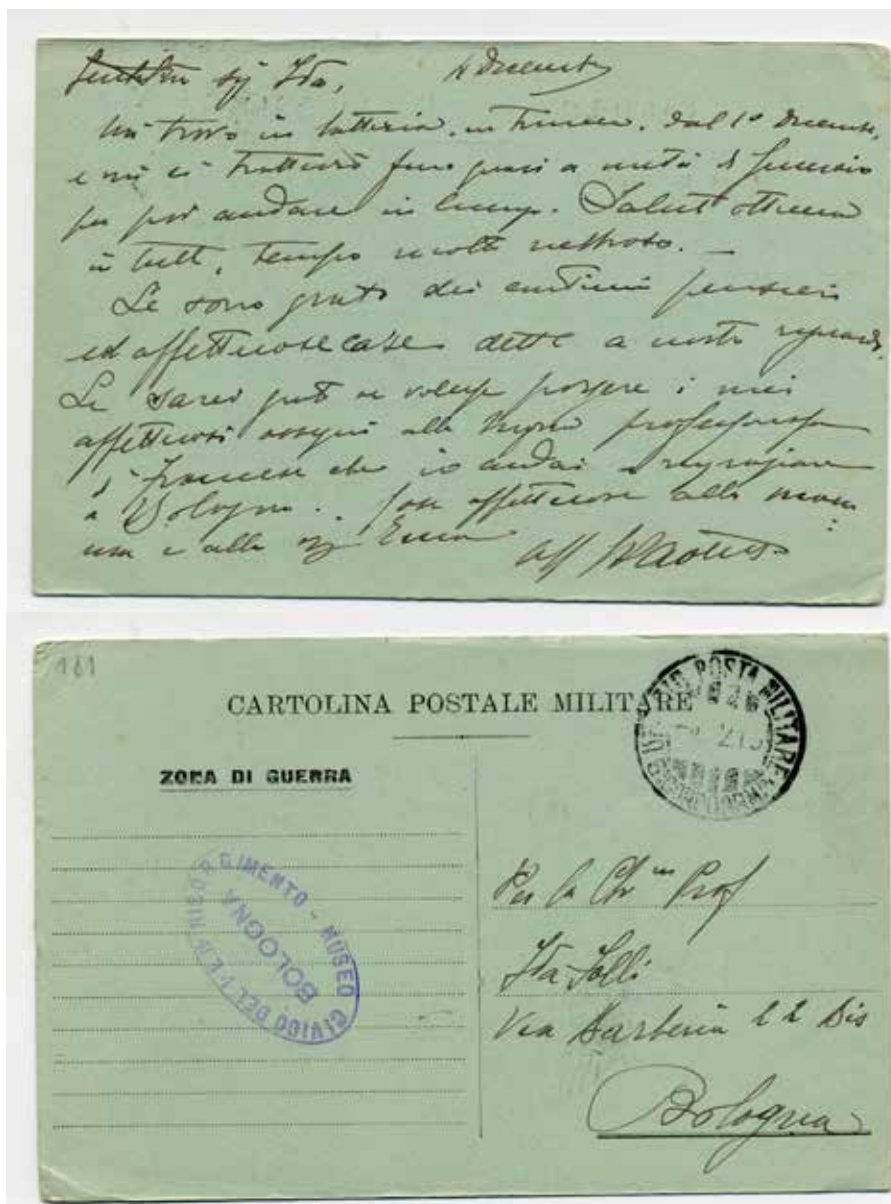 Gentilm Sig Ida,
4 Decemb
Mi trovo in batteria, in trincea, dal 1º Decembre,
e mi ci tratterrò fino quasi a metà di Gennaio
per poi andare in licenza. Salute ottima
in tutti, tempo molto
Le sono grato dei continui pensieri
ed affettuose cose dette a nostro riguardo.
Le sarei grato se volesse porgere i miei
affettuosi ossequi alla Signora professoressa
di francese che io andai a ringraziare
a Bologna. affettuose alla mam:
ma e alla sig Emma
aff
161
CARTOLINA POSTALE MILITARE
POSTA MILITARE
ZONA DI GUERRA
MUSEO CIVICO DEL 1º E 2º RISORGIMENTO - BOLOGNA
Per la Ch ma Prof
Ida Folli
Via Barberia 22 Bis
Bologna